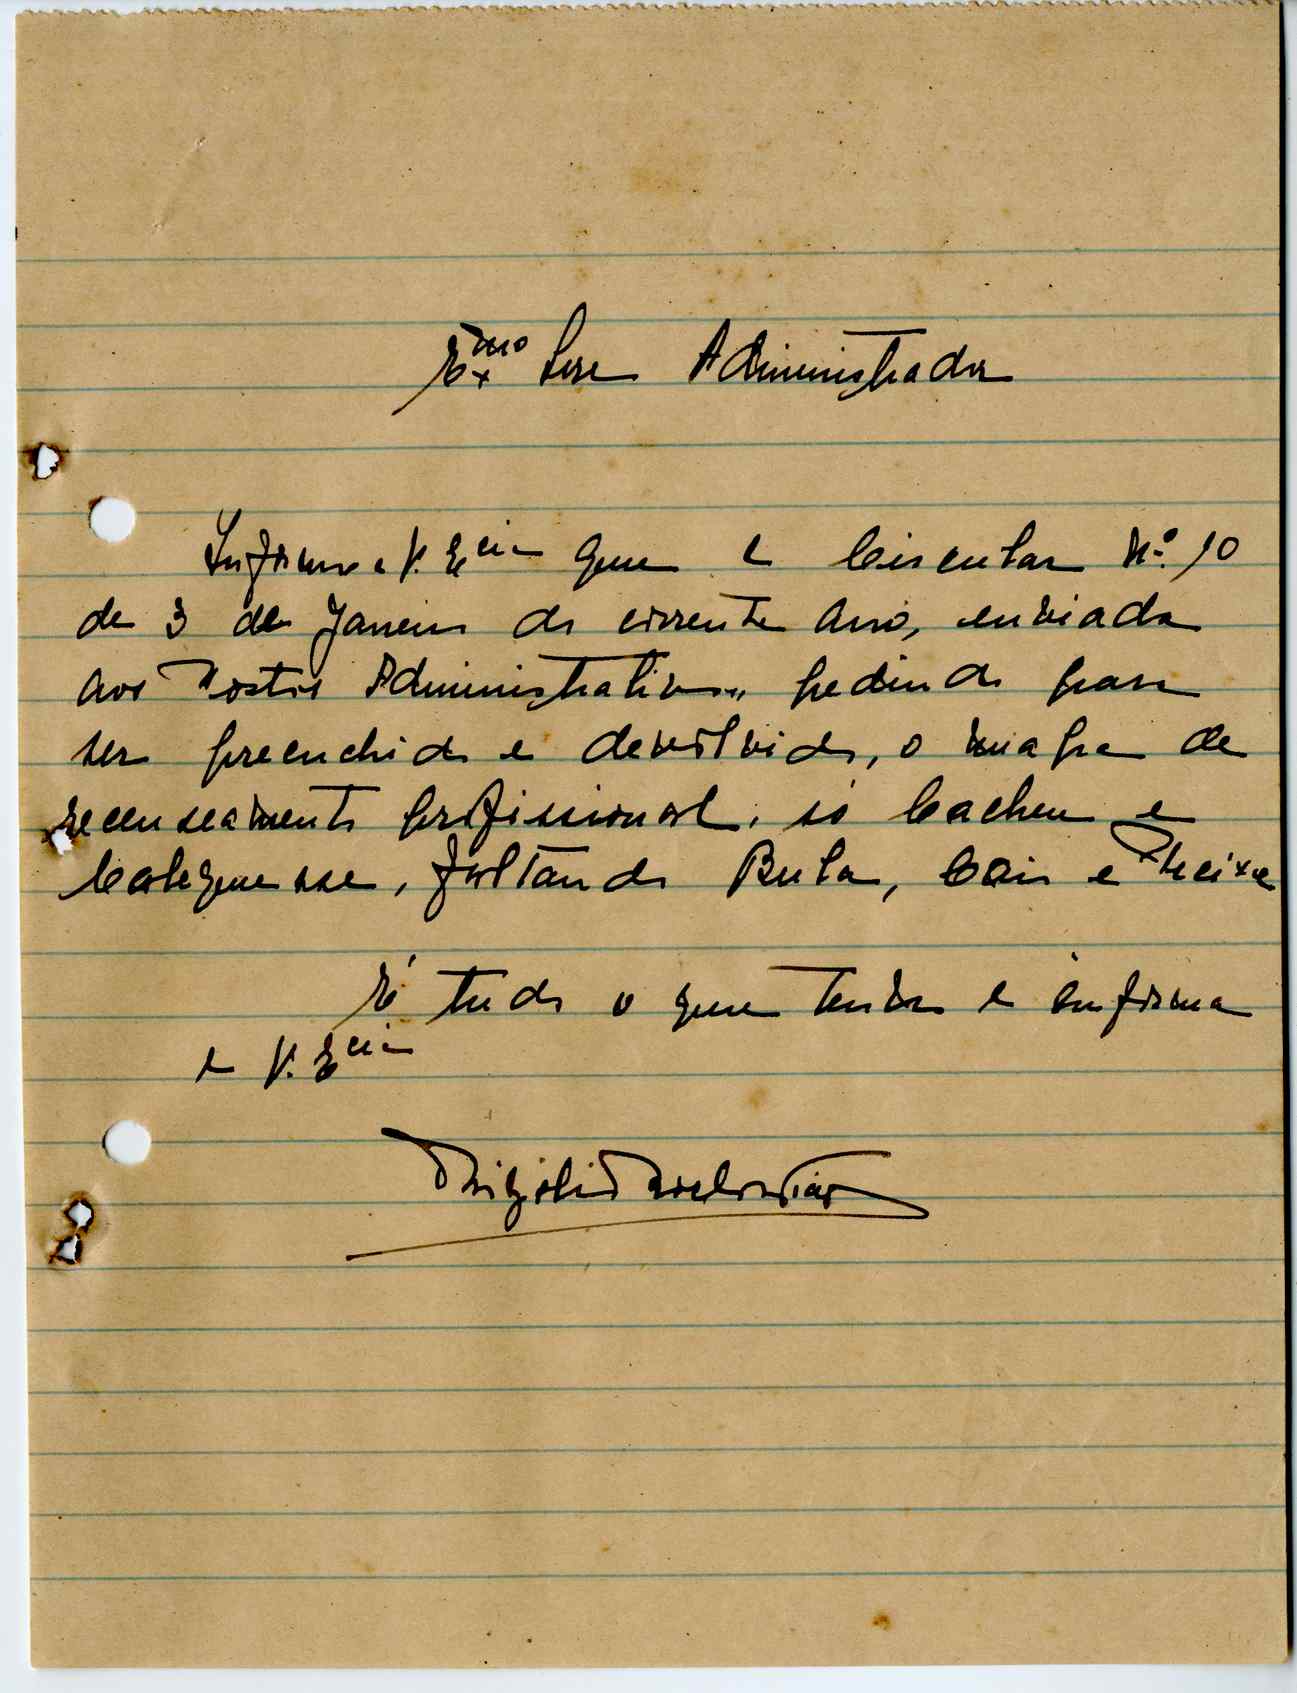 Exmo Snr Administrador
Informo a V. Ecia que a Circular Nº. 10
de 3 de Janeiro do corrente Ano, enviada
aos Postos Administrativos, pedindo para
ser preenchido e devolvido, o mapa de
recenseamento profissional, só Cacheu e
Calequisse, faltando Bula, Caió e Pecixe
É tudo o que tenho a informar
a V. Ecia